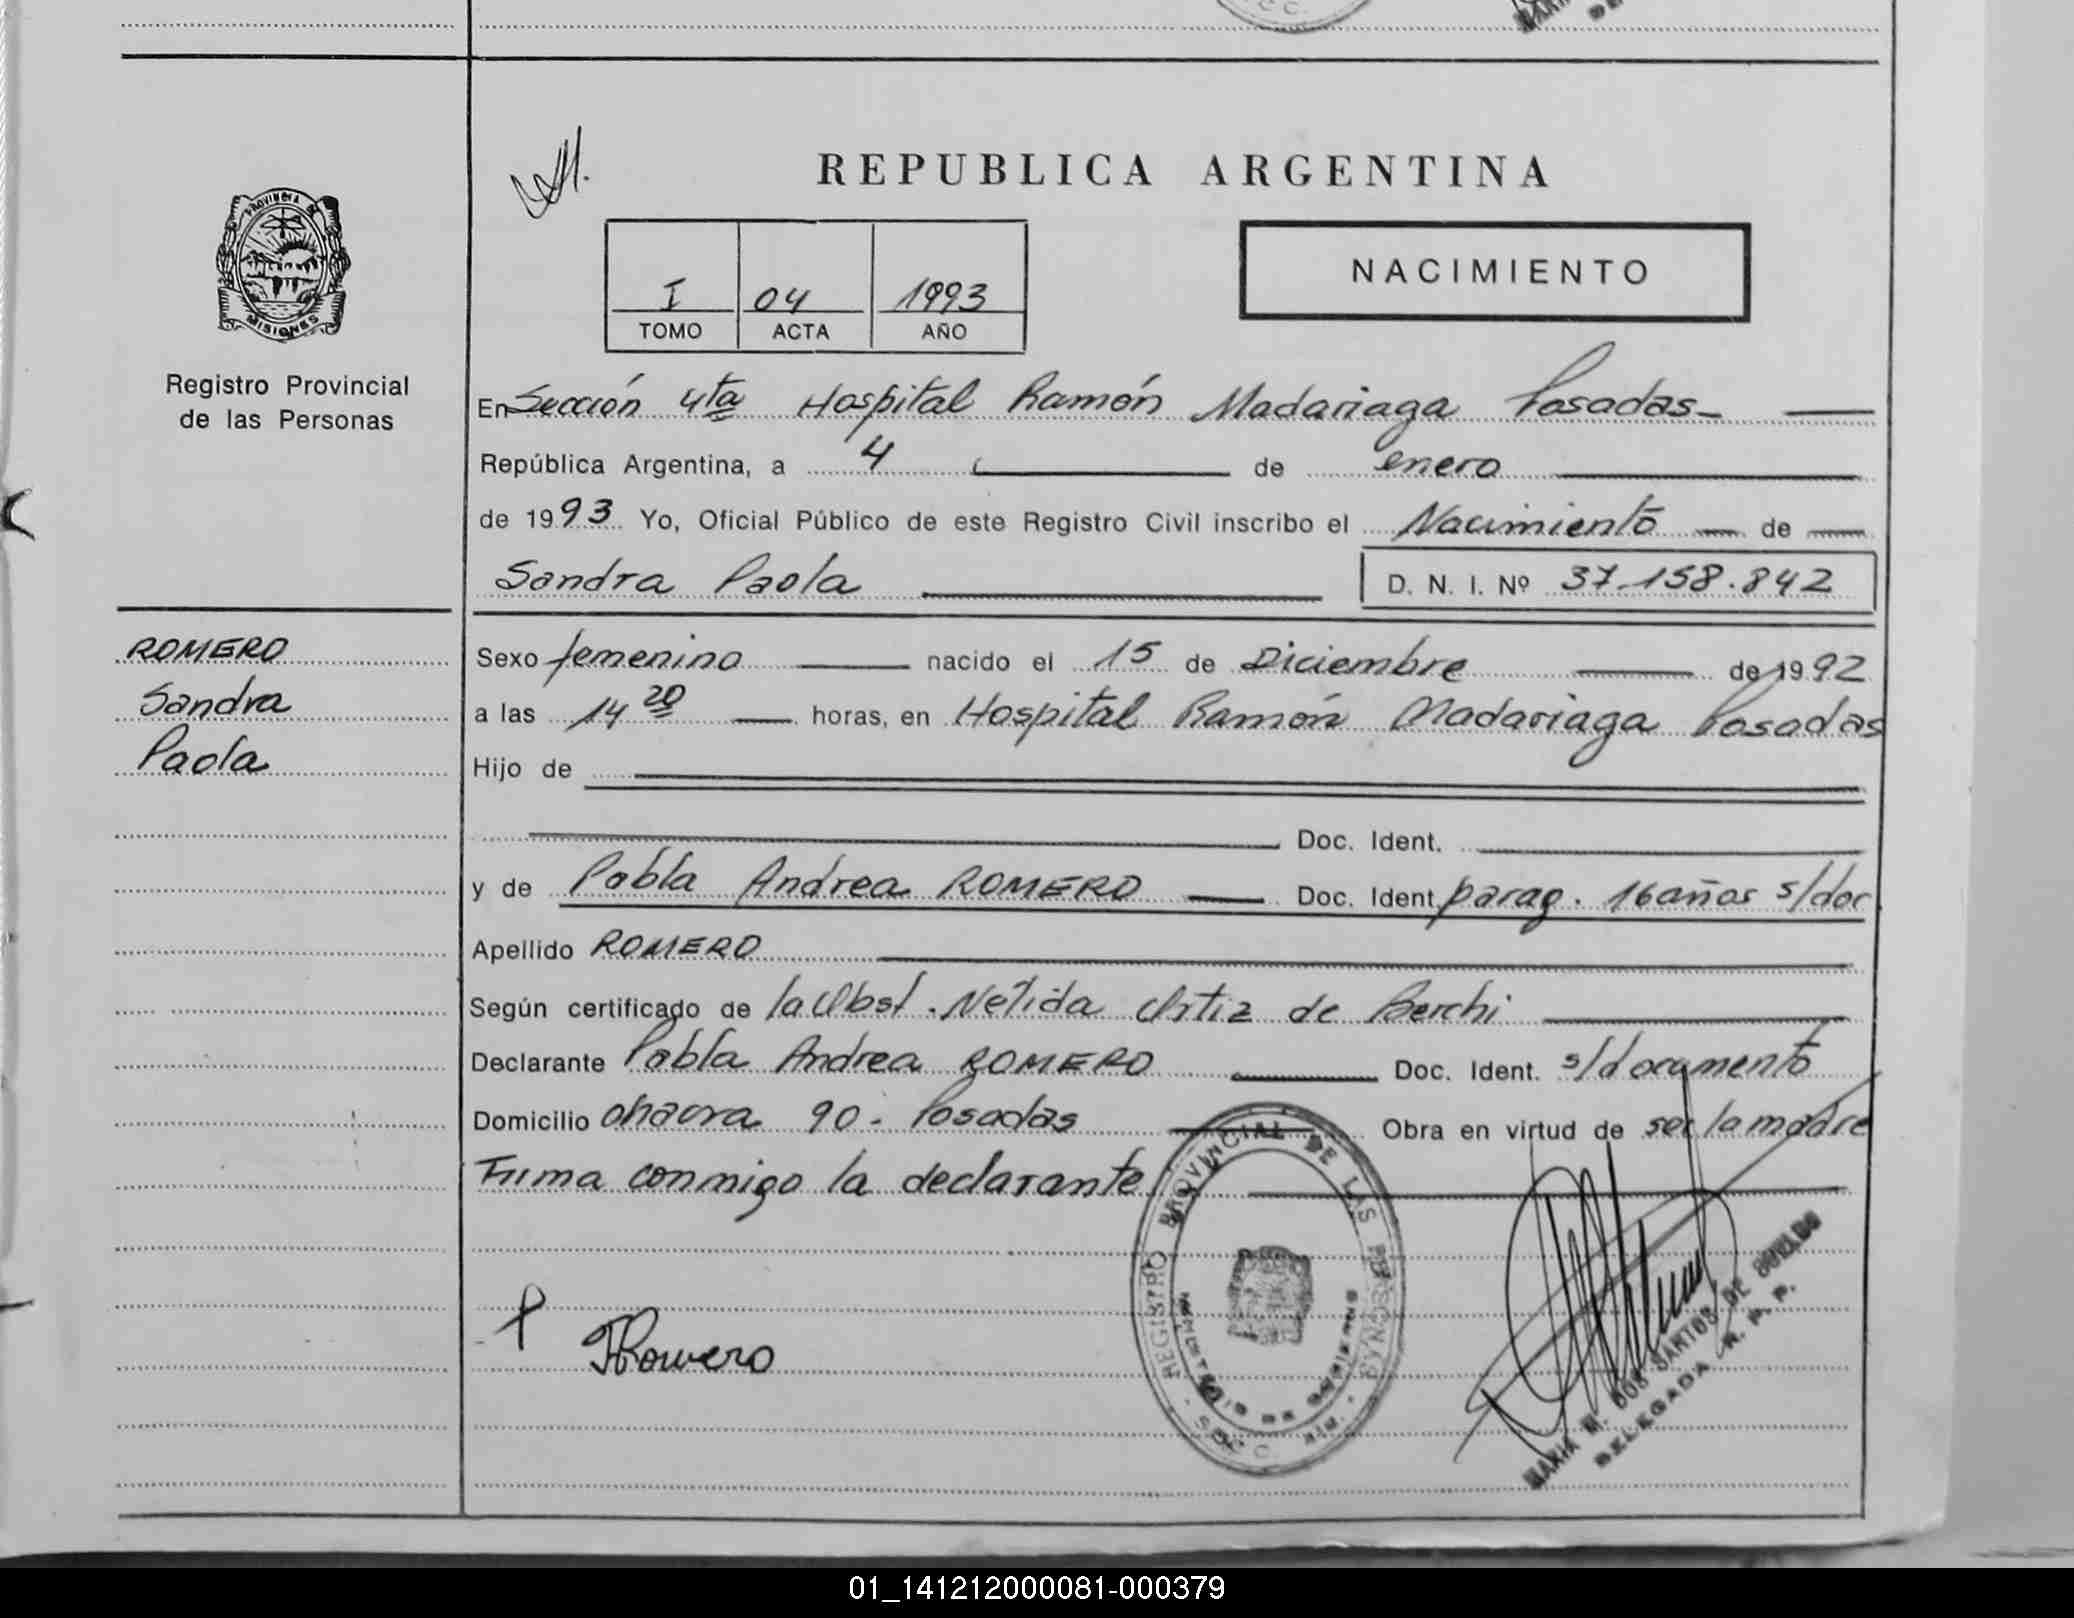 REPUBLICA ARGENTINA
I 04 1993
TOMO ACTA AÑO
NACIMIENTO
PROVINCIA DE
MISIONES
Registro Provincial
de las Personas
En Sección 4ta Hospital Ramón Madariaga Posadas
República Argentina, a 4 de enero
de 1993 Yo, Oficial Público de este Registro Civil inscribo el Nacimiento de
Sandra Paola D. N. I. Nº 37.158.842
ROMERO
Sandra
Paola
Sexo femenino nacido el 15 de Diciembre de 1992
a las 14 20 horas, en Hospital Ramón Madariaga Posadas
Hijo de
Doc. Ident.
y de Pabla Andrea ROMERO Doc. Ident parag. 16 años s/doc
Apellido ROMERO
Según certificado de la Obst. Nélida Ortiz de Berchi
Declarante Pabla Andrea ROMERO Doc. Ident. s/documento
Domicilio chacra 90 - Posadas Obra en virtud de ser la madre
Firma conmigo la declarante
REGISTRO PROVINCIAL DE LAS PERSONAS
P Romero
MARIA M. DOS SANTOS DE
DELEGADA R. P. P.
01_141212000081-000379